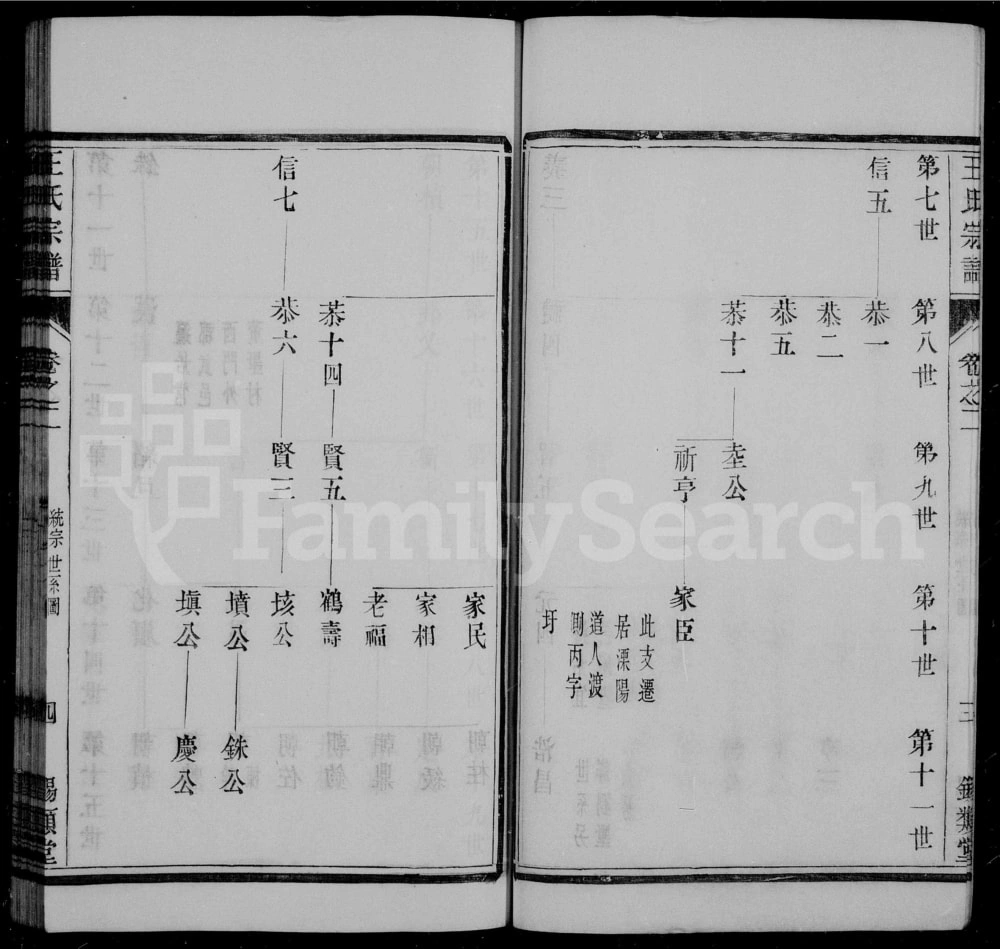 王氏宗譜
卷之二
三
錫類堂
第七世
第八世
第九世
第十世
第十一世
信五
恭一
恭二
恭五
恭十一
坴公
祈亨
家臣
此支遷
居溧陽
道人渡
圩
家民
家相
老福
恭十四
賢五
鶴壽
信七
恭六
賢三
垓公
墳公
銖公
塡公
慶公
王氏宗譜
卷之二
統宗世系圖
四
錫類堂
FamilySearch